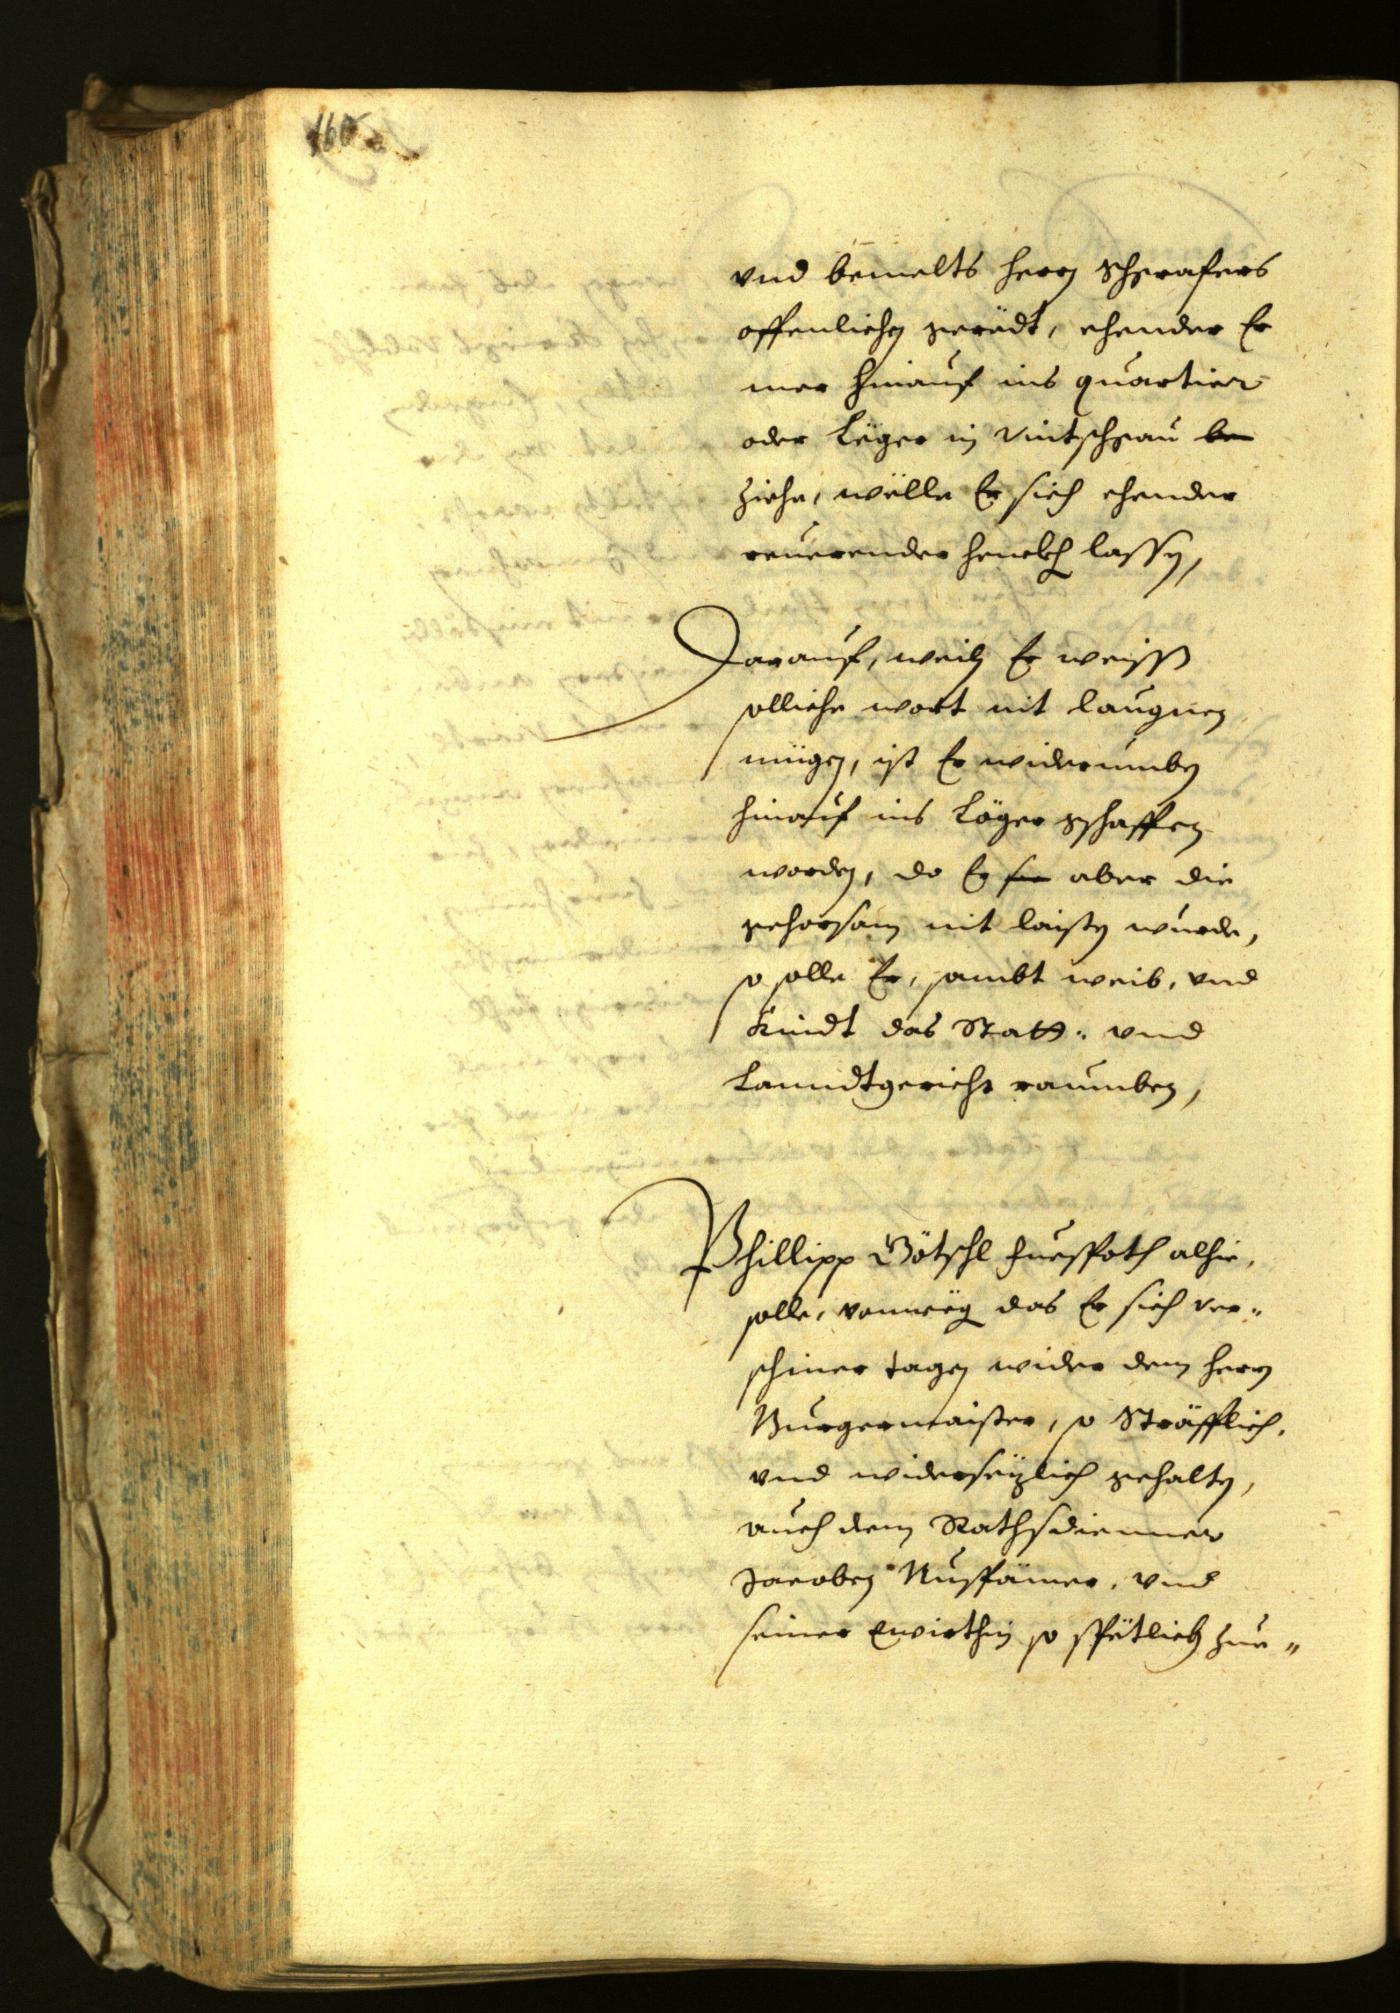 160
vnd bemelts herrn Schgrafers
offenlichen geredt, ehender Er
mer hinauf ins quartier
oder Leger in Vintschgau
ziehe, wölle Er sich ehender
reuerender henckh lassen,
Darauf, weiln Er weiss
solliche wort nit laugnen
mügen, ist Er widerumben
hinauf ins Löger gschaffen
worden, do Er aber die
gehorsam nit laisten wurde,
so solle Er, sambt weib, vnd
Kindt das Statt: vnd
Lanndtgericht raumben,
Phillipp Götschl alhie,
solle, vonweg das Er sich ver„
schiner tagen wider dem herrn
Burgermaister, so Sträfflich,
vnd widersezlich gehalten,
auch dem Rathsdienner
Jacoben Nussämer, vnd
seiner Ewirthin so spötlich zue„